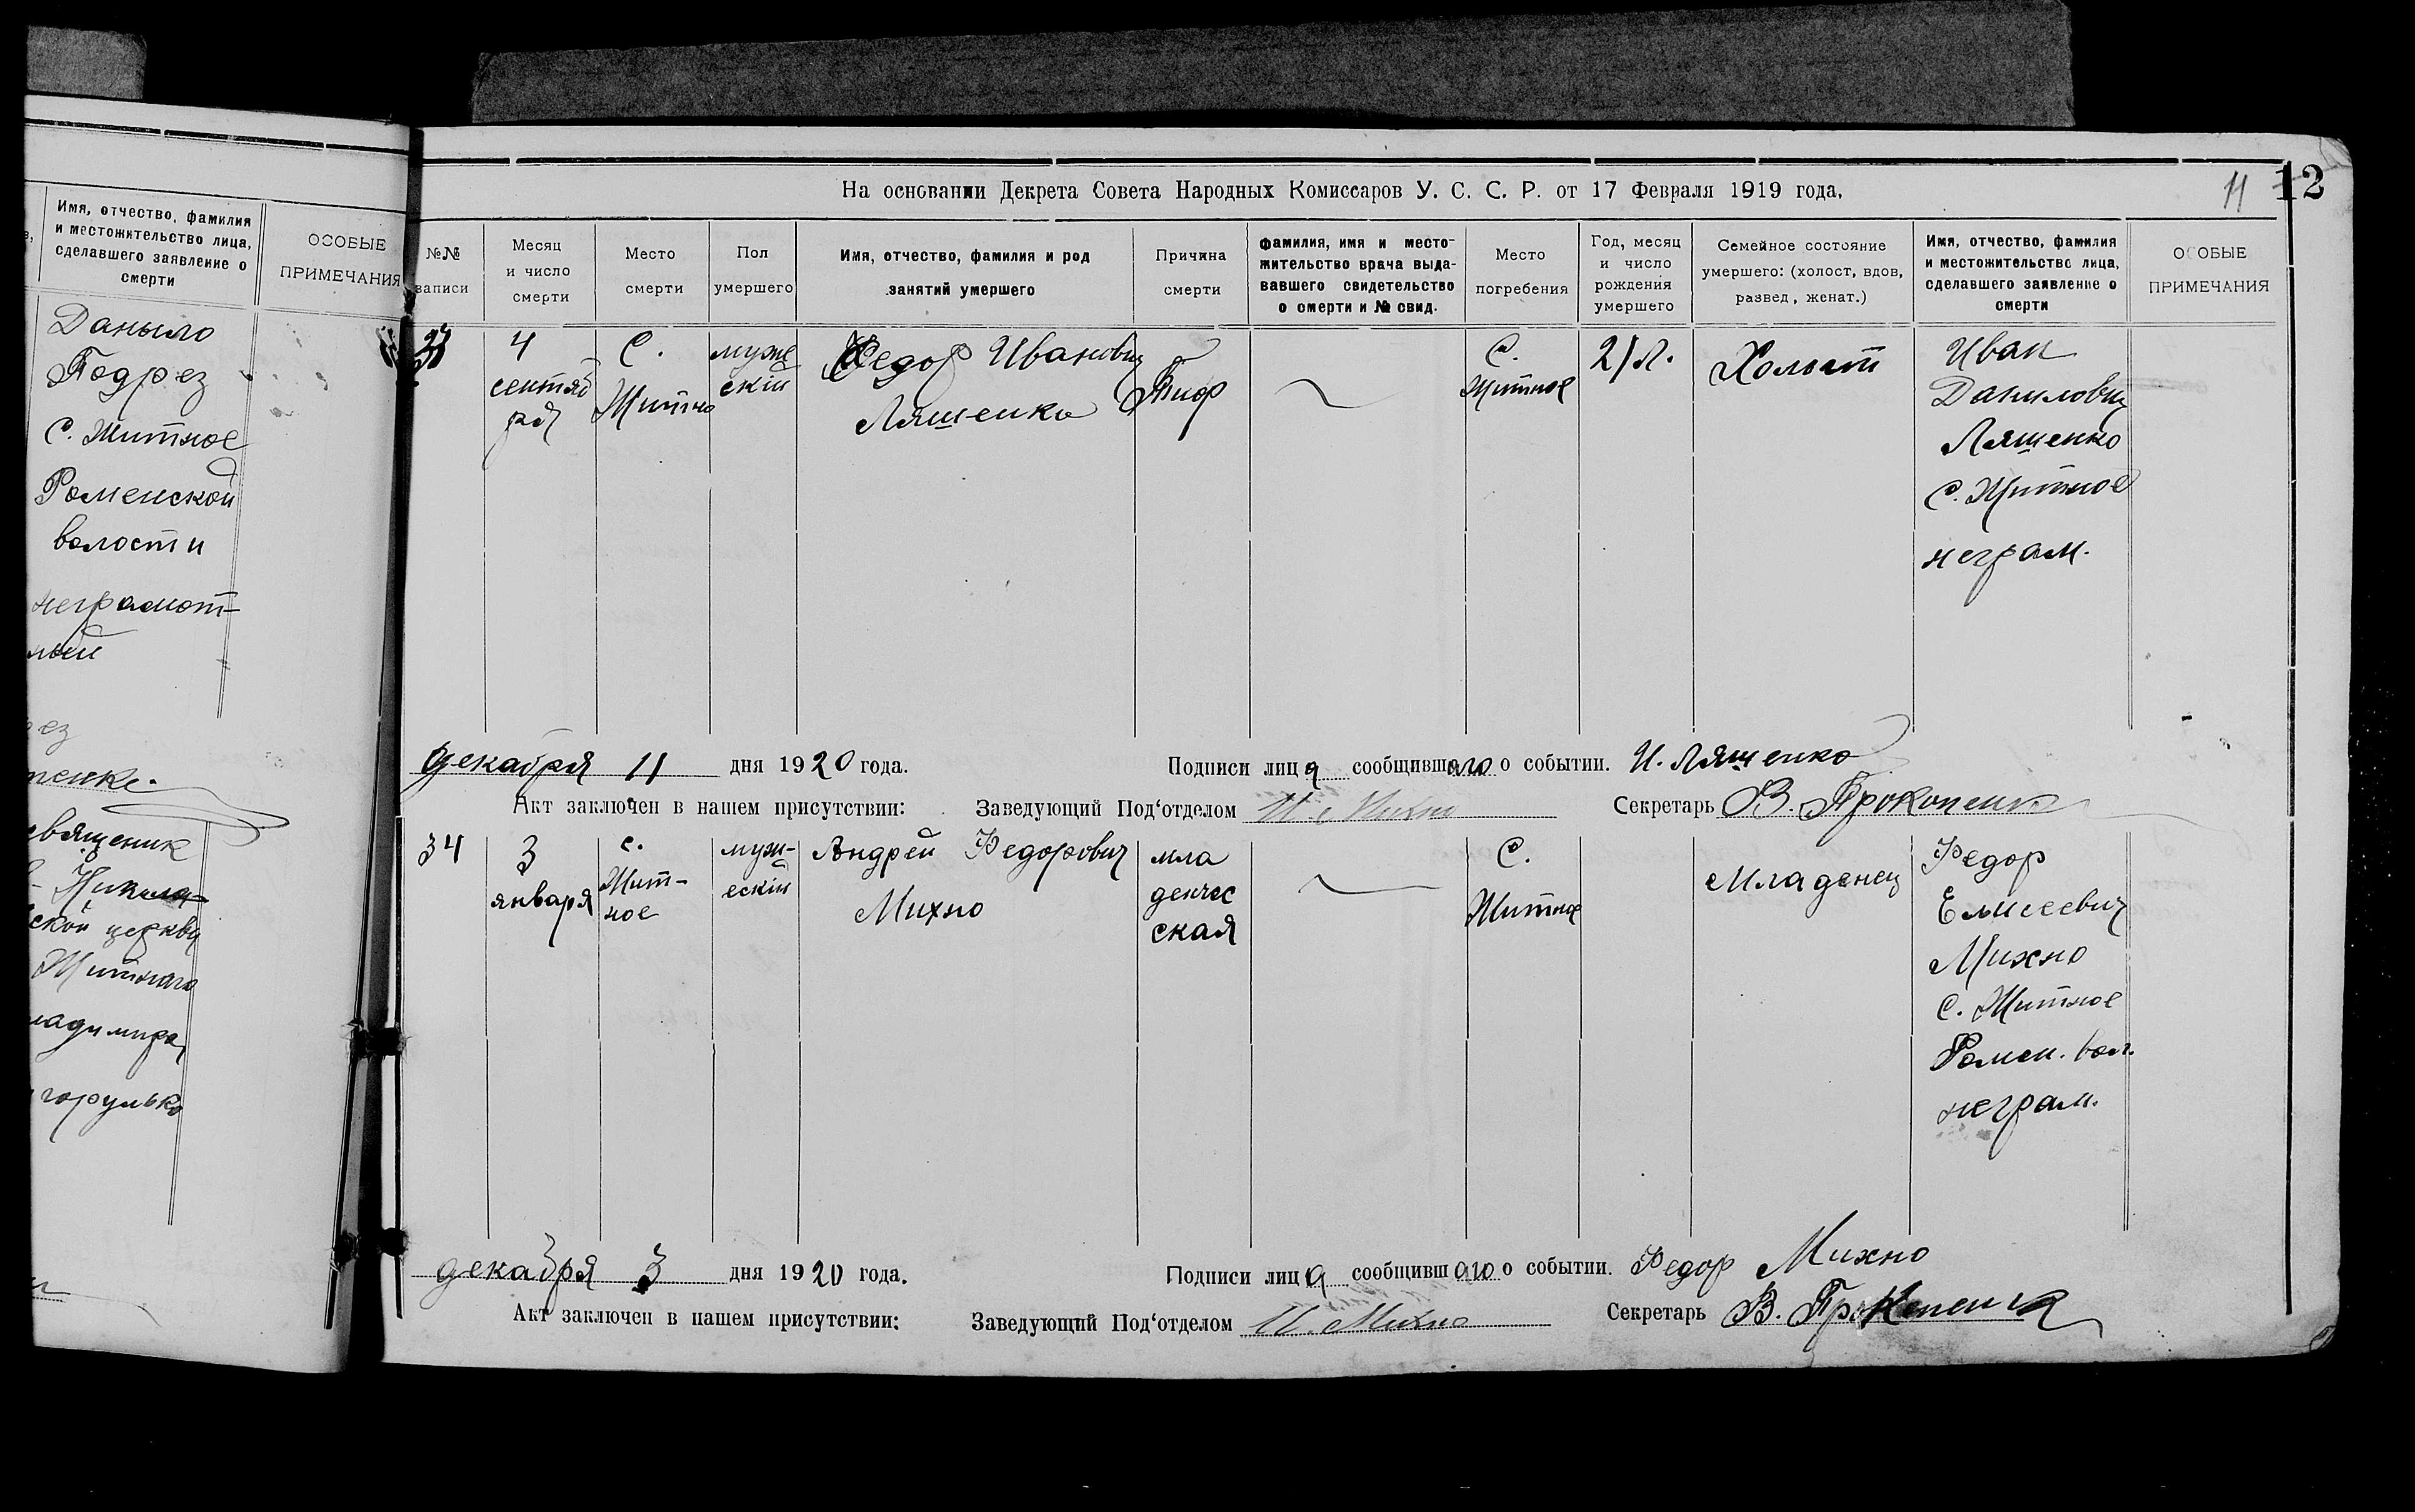 Имя, отчество, фамилия
и местожительство лица,
сделавшего заявление о
смерти
ОСОБЫЕ
ПРИМЕЧАНИЯ
Даныло
Подрез
С. Житное
Роменской
волости
неграмот-
ный
ез
тенко.
священик
Никола-
ской церкви
Житнаго
ладимира
горулько
На основании Декрета Совета Народных Комиссаров У. С. С. Р. от 17 Февраля 1919 года,
11
12
№№
записи
Месяц
и число
смерти
Место
смерти
Пол
умершего
Имя, отчество, фамилия и род
занятий умершего
Причина
смерти
фамилия, имя и место-
жительство врача выда-
вавшего свидетельство
о смерти и № свид.
Место
погребения
Год, месяц
и число
рождения
умершего
Семейное состояние
умершего: (холост, вдов,
развед, женат.)
Имя, отчество, фамилия
и местожительство лица,
сделавшего заявление о
смерти
ОСОБЫЕ
ПРИМЕЧАНИЯ
4
сентяб
ря
С.
Житно
муже
скій
Федор Иванович
Ляшенко
Тиф
С.
Житное
21 л.
Холост
Иван
Данилович
Ляшенко
С. Житное
неграм.
декабря 11 дня 1920 года.
Подписи лица сообщившаго о событии. И. Ляшенко
Акт заключен в нашем присутствии: Заведующий Под‘отделом И. Михно
Секретарь В. Прокопенко
34
3
января
с.
Жит-
ное
муж-
ескій
Андрей Федорович
Михно
мла
денчес
ская
С.
Житное
Младенец
Федор
Елисеевич
Михно
С. Житное
Ромен. вол.
неграм.
декабря 3 дня 1920 года.
Подписи лица сообщившаго о событии. Федор Михно
Акт заключен в нашем присутствии: Заведующий Под‘отделом И. Михно
Секретарь В. Прокопенко